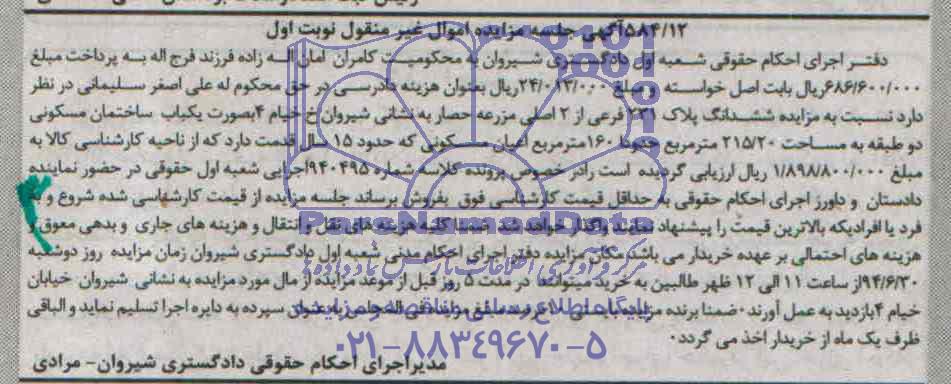 ۵۸۴/۱۲آگهی جلسه مزایده اموال غیر منقول نوبت اول
دفتر اجرای احکام حقوقی شعبه اول دادگستری شیروان به محکومیت کامران امان اله زاده فرزند فرج اله به پرداخت مبلغ
۶۸۶/۶۰۰/۰۰۰ریال بابت اصل خواسته و مبلغ ۲۴/۰۱۳/۰۰۰ریال بعنوان هزینه دادرسی در حق محکوم له علی اصغر سلیمانی در نظر
دارد نسبت به مزایده ششدانگ پلاک ۲۳۱ فرعی از ۲ اصلی مزرعه حصار به نشانی شیروان خ خیام ۴بصورت یکباب ساختمان مسکونی
دو طبقه به مساحت ۲۱۵/۲۰ مترمربع حدودا ۱۶۰مترمربع اعیان مسکونی که حدود ۱۵سال قدمت دارد که از ناحیه کارشناسی کالا به
مبلغ ۱/۸۹۸/۸۰۰/۰۰۰ ریال ارزیابی گردیده است رادر خصوص پرونده کلاسه شماره ۹۴۰۴۹۵اجرایی شعبه اول حقوقی در حضور نماینده
دادستان و داورز اجرای احکام حقوقی به حداقل قیمت کارشناسی فوق بفروش برساند جلسه مزایده از قیمت کارشناسی شده شروع و به
فرد یا افرادیکه بالاترین قیمت را پیشنهاد نمایند واگذار خواهد شد ضمنا کلیه هزینه های نقل و انتقال و هزینه های جاری و بدهی معوق و
هزینه های احتمالی بر عهده خریدار می باشد مکان مزایده دفتر اجرای احکام مدنی شعبه اول دادگستری شیروان زمان مزایده روز دوشنبه
۹۴/۶/۳۰از ساعت ۱۱ الی ۱۲ ظهر طالبین به خرید میتوانند در مدت ۵ روز قبل از موعد مزایده از مال مورد مزایده به نشانی شیروان خیابان
خیام ۴بازدید به عمل آورند ضمنا برنده مزایده بعنوان سپرده به دایره اجرا تسلیم نماید و الباقی
ظرف یک ماه از خریدار اخذ می گردد
مدیر اجرای احکام حقوقی دادگستری شیروان- مرادی
ParsNamadData
مرکز فرآوری اطلاعات پارس نماد داده ها
پایگاه اطلاع رسانی مناقصه مزایده
۰۲۱-۸۸۳۴۹۶۷۰-۵